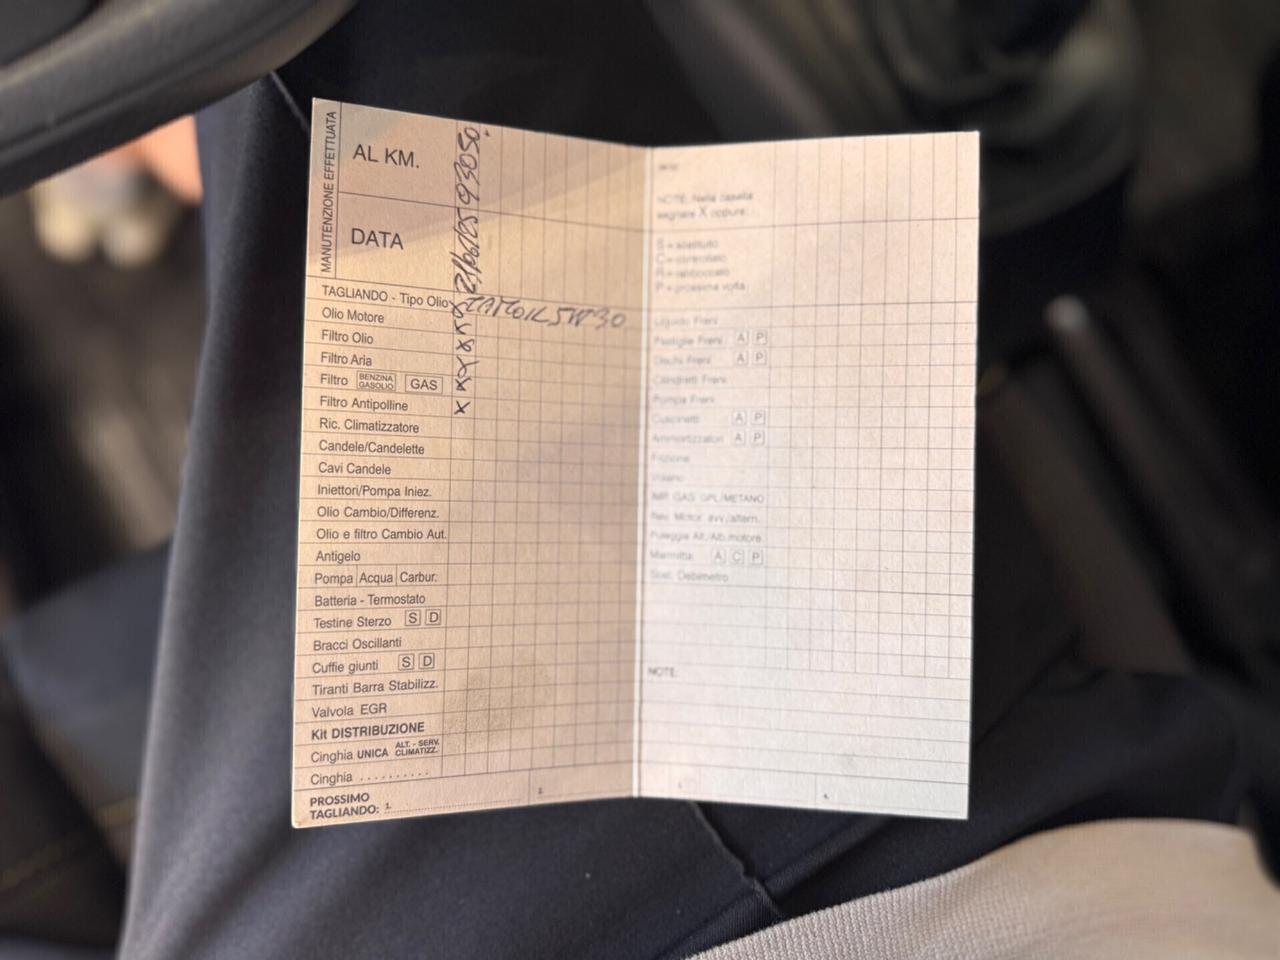 MANUTENZIONE EFFETTUATA
AL KM. 93050
DATA
TAGLIANDO - Tipo Olio X 5W30
Olio Motore X
Filtro Olio X
Filtro Aria X
Filtro BENZINA GASOLIO GAS X
Filtro Antipolline X
Ric. Climatizzatore
Candele/Candelette
Cavi Candele
Iniettori/Pompa Iniez.
Olio Cambio/Differenz.
Olio e filtro Cambio Aut.
Antigelo
Pompa Acqua Carbur.
Batteria - Termostato
Testine Sterzo S D
Bracci Oscillanti
Cuffie giunti S D
Tiranti Barra Stabilizz.
Valvola EGR
Kit DISTRIBUZIONE
Cinghia UNICA ALT. - SERV. CLIMATIZZ.
Cinghia ..........
PROSSIMO
TAGLIANDO: 1. 2.
NOTE: Nella casella
segnare X oppure:
S = sostituito
C = controllato
R = rabboccato
P = prossima volta
Liquido Freni
Pastiglie Freni A P
Dischi Freni A P
Cilindretti Freni
Pompa Freni
Cuscinetti A P
Ammortizzatori A P
Frizione
Volano
IMP. GAS GPL/METANO
Rev. Motor. avv./altern.
Puleggia Alt./Alb.motore
Marmitta A C P
Sost. Debimetro
NOTE:
4.